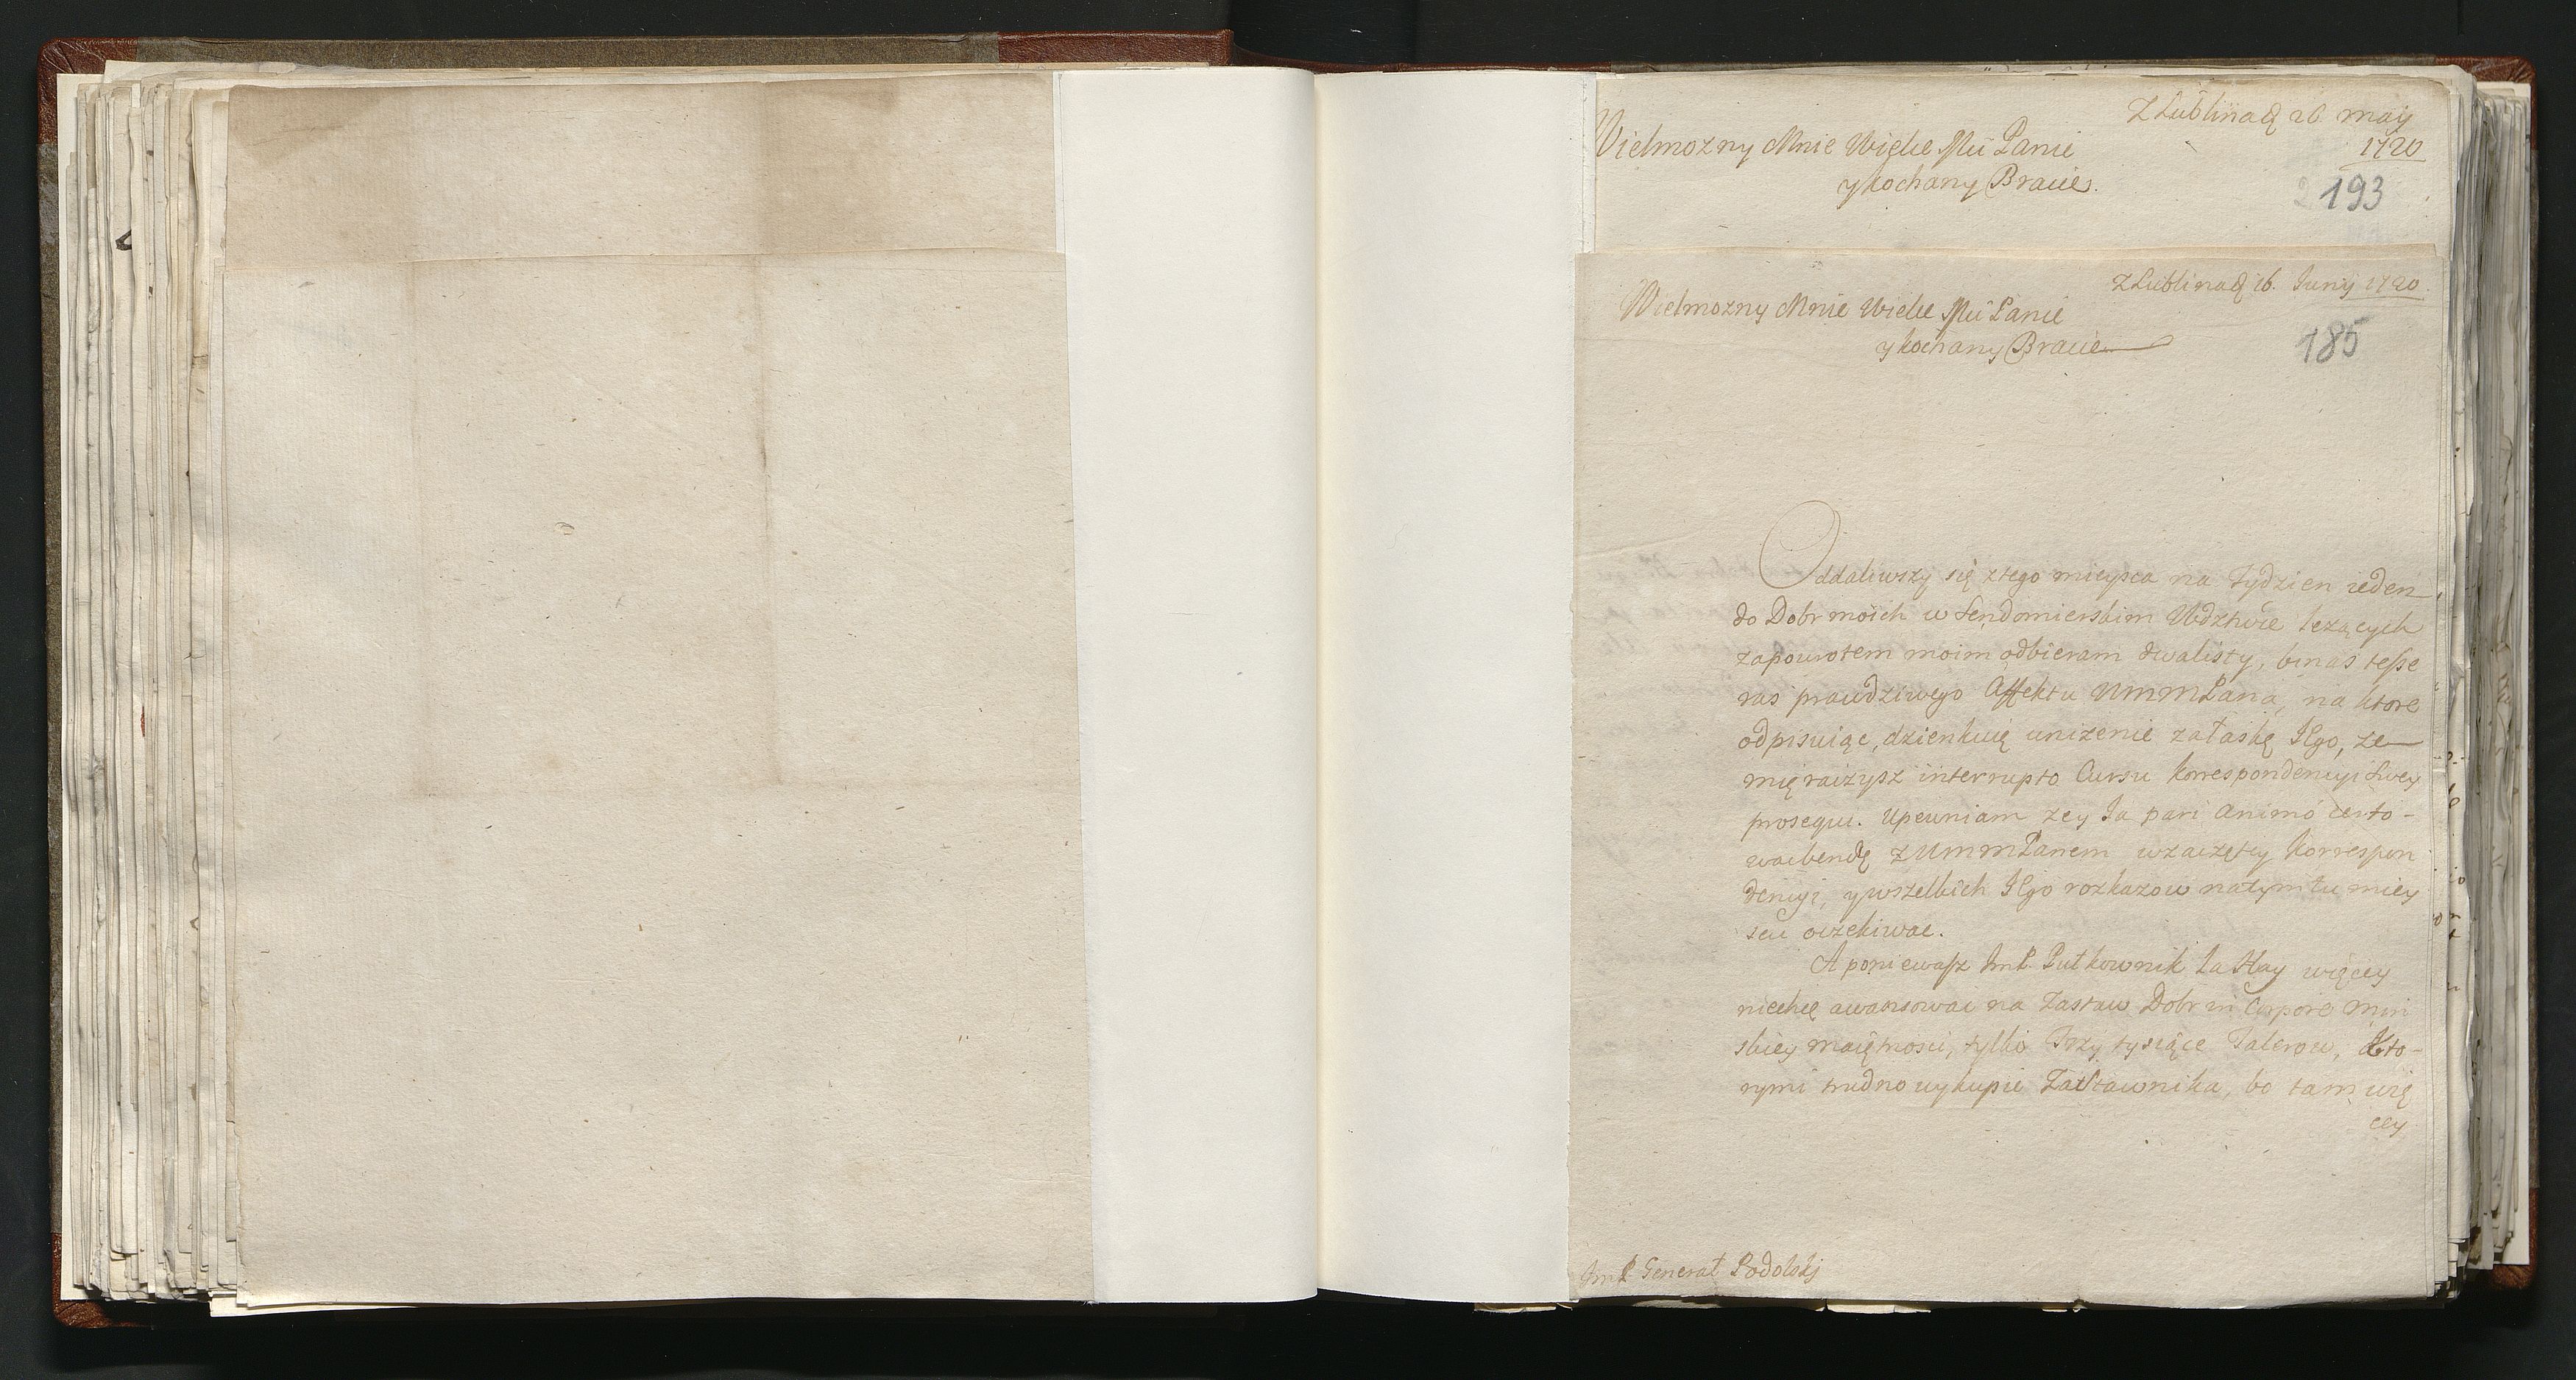 Z Lublina d 26 maij
1720
Wielmozny Mnie Wielce Mći Panie
y kochany Bracie.
193
Z Lublina d 16. Junij 1720.
Wielmozny Mnie Wielce Mći Panie
y kochany Bracie
185
Oddaliwszy się ztego mieysca na Tydzien ieden
do Dobr moich w Sendomierskim Wdztwie lezących
zapowrotem moim odbieram dwalisty, binas tesse
ras prawdziwego Affektu WmmPana, na ktore
odpisuiąc, dzienkuię unizenie załaskę Jego, ze
mię raczysz interrupto Cursu korrespondencyi swey
prosequi. Upewniam zey Ja pari animo certo-
wacbendę z WmmPanem wzaczętey korrespon
dencyi, ywszelkich Jego rozkazow natym tu miey
scu oczekiwac.
A poniewasz JmP. Pułkownik La Hay więcey
niechce awansowac na Zastaw Dobr in Corpore Min
skiey maiętnosci, tylko Trzy tysiące Talerow, kto-
rymi trudno wykupic Zastawnika, bo tam wię
cey
JmP Generał Podolskj